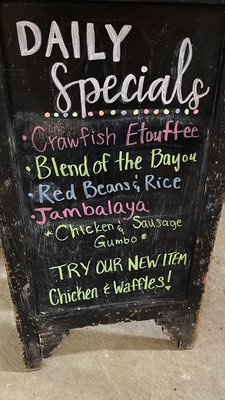 DAILY
Specials
• Crawfish Etouffee
• Blend of the Bayou
• Red Beans & Rice
• Jambalaya
*Chicken & Sausage
Gumbo*
TRY OUR NEW ITEM
Chicken & Waffles!